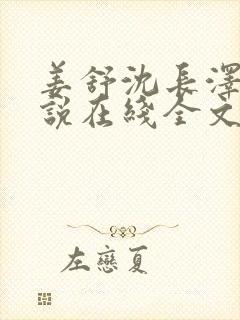 姜舒沈长澤
說在綫全文
左戀夏